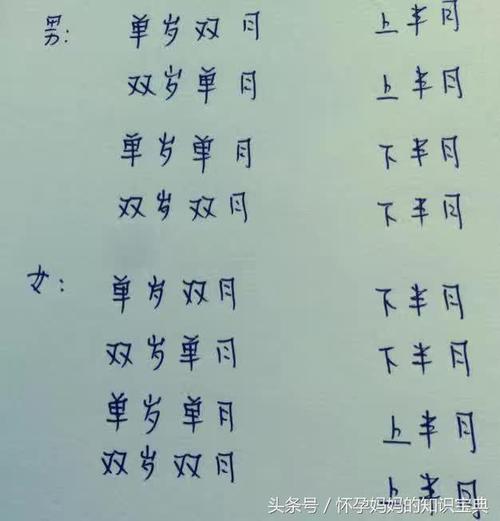 男: 单岁双月 上半月
双岁单月 上半月
单岁单月 下半月
双岁双月 下半月
女: 单岁双月 下半月
双岁单月 下半月
单岁单月 上半月
双岁双月 上半月
头条号/怀孕妈妈的知识宝典